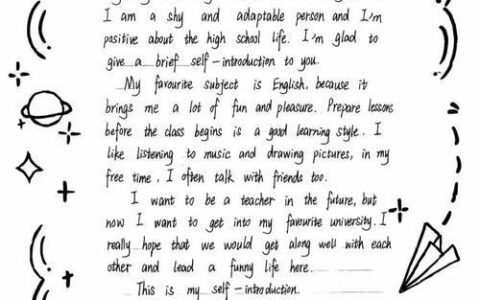 I am a shy and adaptable person and I'm
positive about the high school life. I'm glad to
give a brief self-introduction to you.
My favourite subject is English, because it
brings me a lot of fun and pleasure. Prepare lessons
before the class begins is a good learning style. I
like listening to music and drawing pictures, in my
free time, I often talk with friends too.
I want to be a teacher in the future, but
now I want to get into my favourite university. I
really hope that we would get along well with each
other and lead a funny life here.
This is my self-introduction.